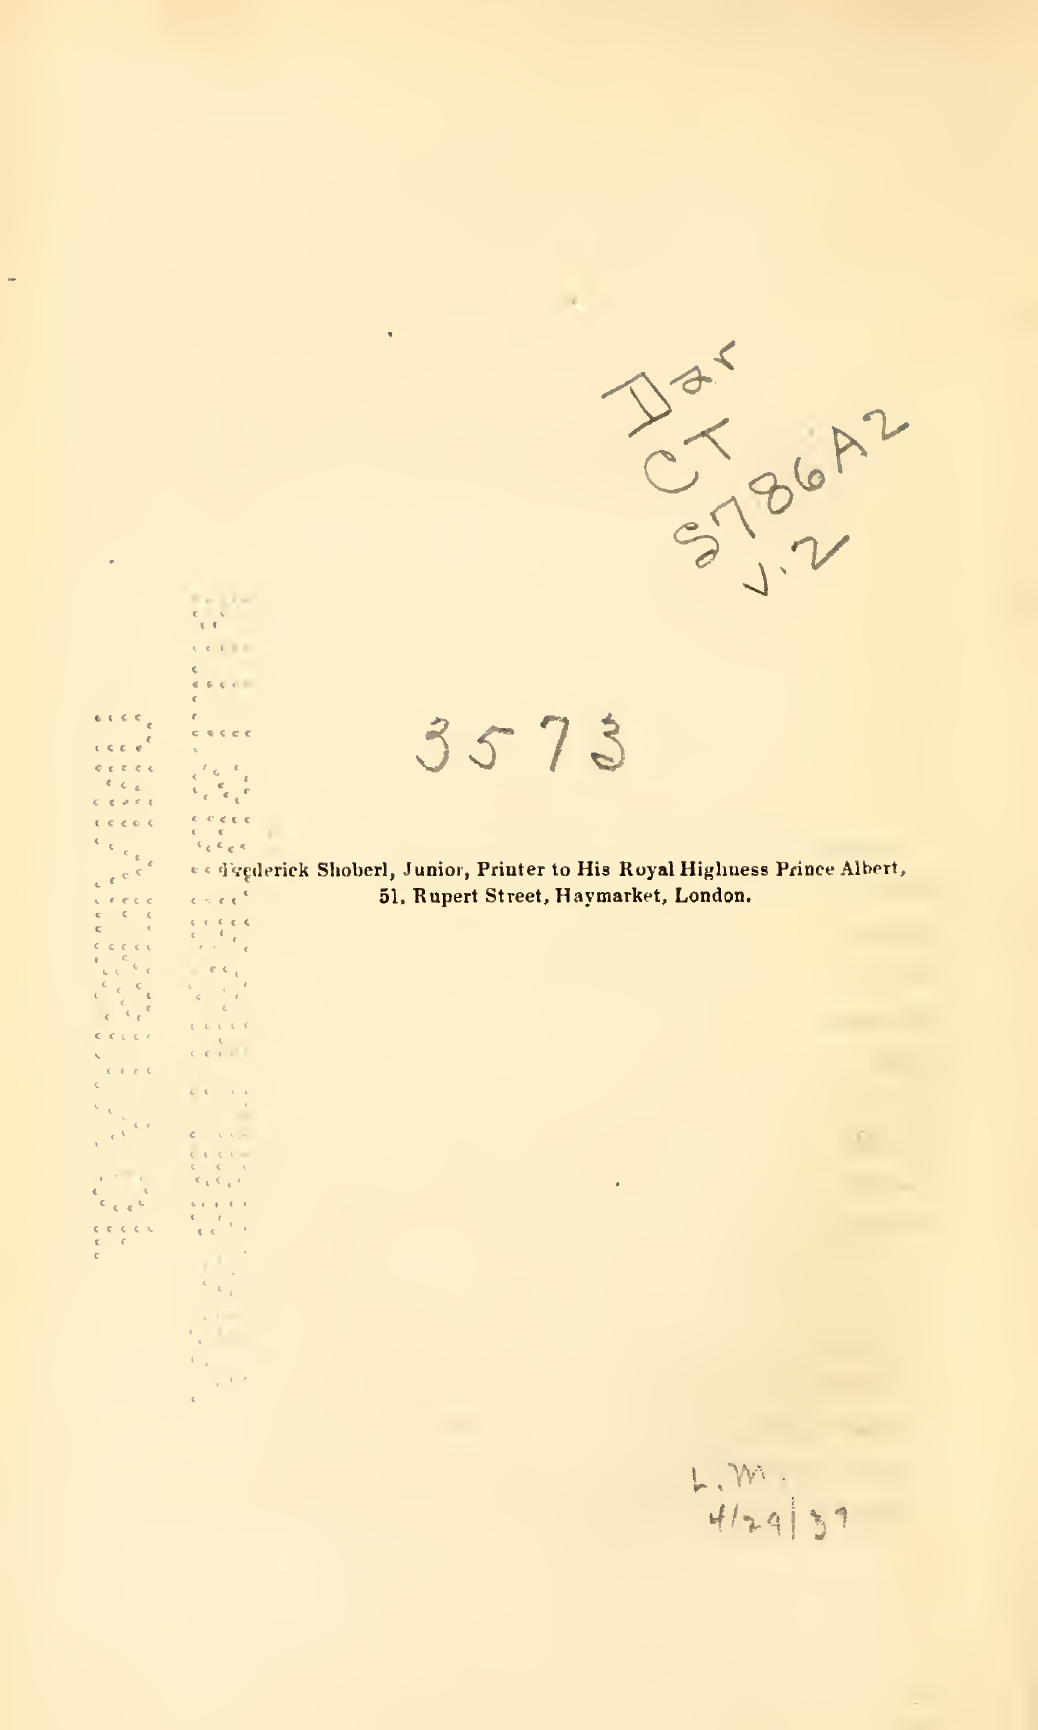 Dar
CT
S786A2
v.2
3573
Frederick Shoberl, Junior, Printer to His Royal Highness Prince Albert,
51, Rupert Street, Haymarket, London.
L.M.
4/29/39